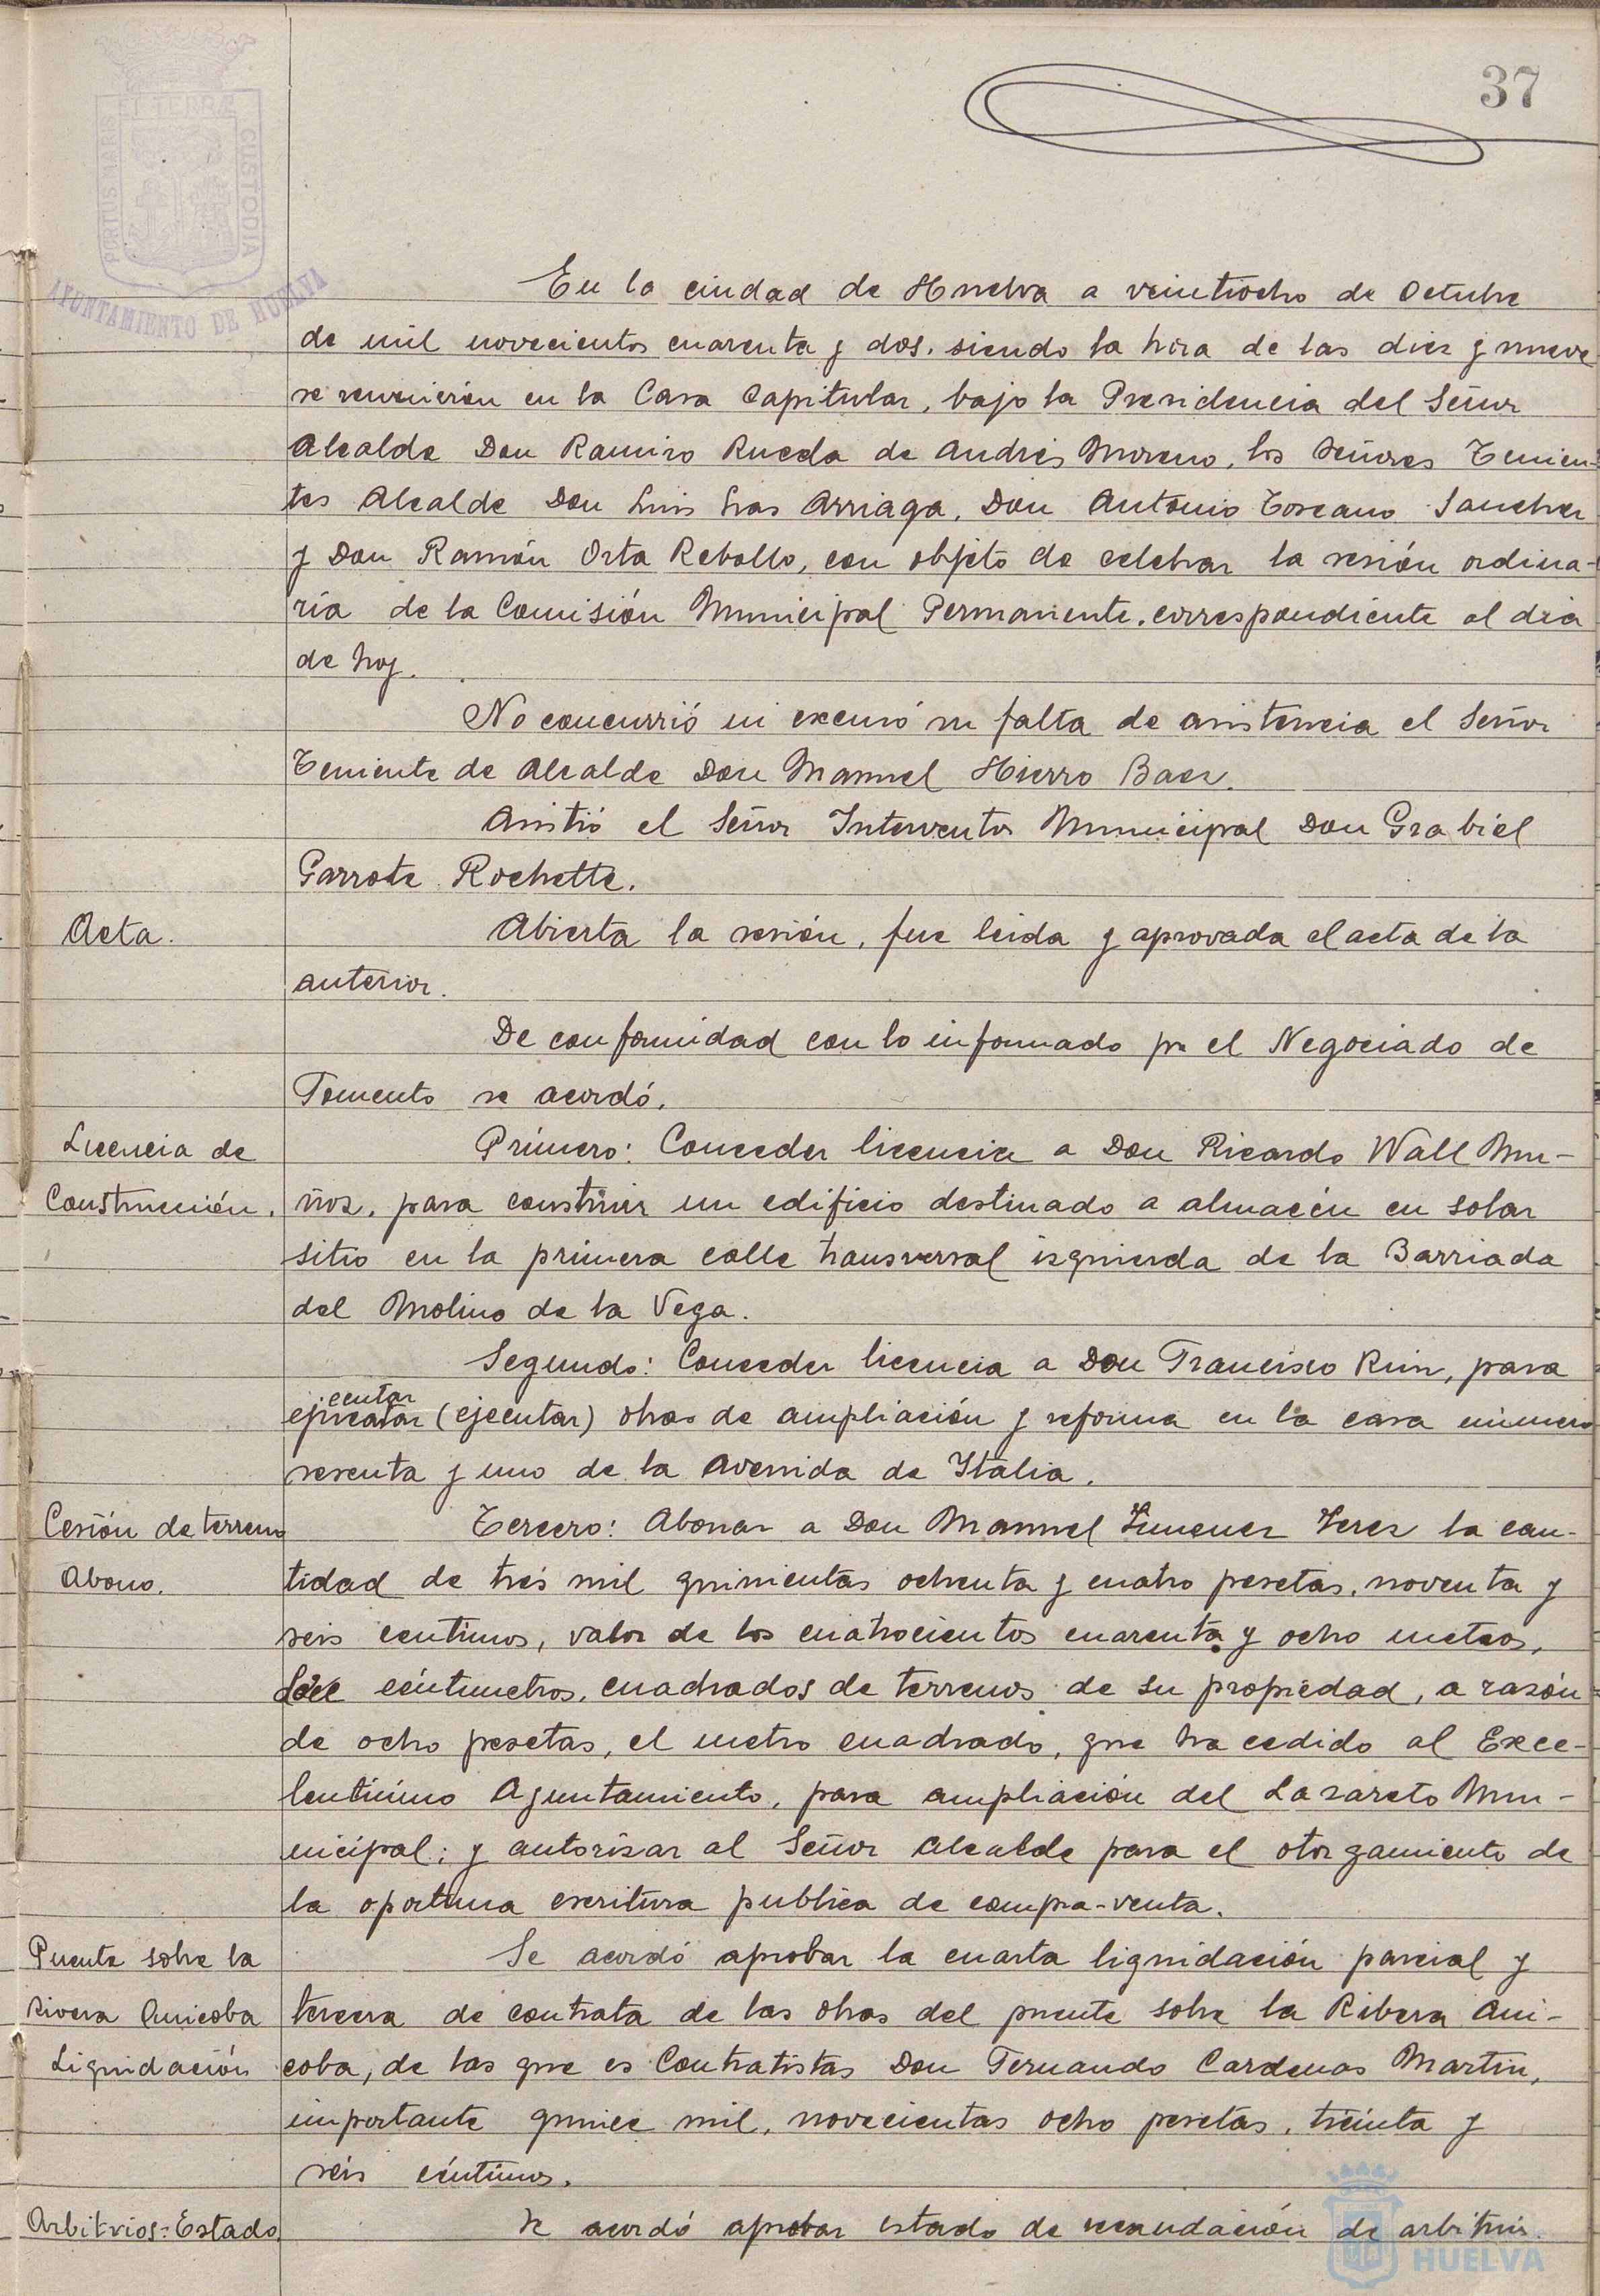 37
PORTUS MARIS ET TERRÆ CUSTODIA
AYUNTAMIENTO DE HUELVA
En la ciudad de Huelva a veintiocho de Octubre
de mil novecientos cuarenta y dos, siendo la hora de las diez y nueve
se reunieron en la Casa Capitular, bajo la Presidencia del Señor
Alcalde Don Ramiro Rueda de Andrés Moreno, los Señores Tenien-
tes Alcalde Don Luis Gras Arriaga, Don Antonio Toscano Sanchez
y Don Ramón Orta Rebollo, con objeto de celebrar la sesión ordina-
ria de la Comisión Municipal Permanente, correspondiente al dia
de hoy.
No concurrió ni excusó su falta de asistencia el Señor
Teniente de Alcalde Don Manuel Hierro Baez.
Asistió el Señor Interventor Municipal Don Grabiel
Garrote Rochette.
Acta.
Abierta la sesión, fue leida y aprovada el acta de la
anterior.
De conformidad con lo informado por el Negociado de
Fomento se acordó.
Licencia de
Construcción.
Primero: Conceder licencia a Don Ricardo Wall Mu-
ñoz, para construir un edificio destinado a almacén en solar
sitio en la primera calle transversal izquierda de la Barriada
del Molino de la Vega.
Segundo: Conceder licencia a Don Francisco Ruiz, para
ecutar
(ejecutar) obras de ampliación y reforma en la casa número
sesenta y uno de la Avenida de Italia.
Cesión de terreno
Abono.
Tercero: Abonar a Don Manuel Jimenez Jerez la can-
tidad de trés mil quinientas ochenta y cuatro pesetas, noventa y
seis centimos, valor de los cuatrocientos cuarenta y ocho metros,
doce céntimetros, cuadrados de terrenos de su propiedad, a razón
de ocho pesetas, el metro cuadrado, que ha cedido al Exce-
lentísimo Ayuntamiento, para ampliación del Lazareto Mu-
nicipal; y autorizar al Señor Alcalde para el otorgamiento de
la oportuna escritura publica de compra-venta.
Puente sobre la
Rivera Anicoba
Liquidación
Se acordó aprobar la cuarta liquidación parcial y
tercera de contrata de las obras del puente sobre la Ribera Ani-
coba, de las que es Contratistas Don Fernando Cardenas Martin,
importante quince mil, novecientas ocho pesetas, treinta y
seis céntimos.
Arbitrios: Estado
Se acordó aprobar estado de recaudación de arbitrios.
HUELVA